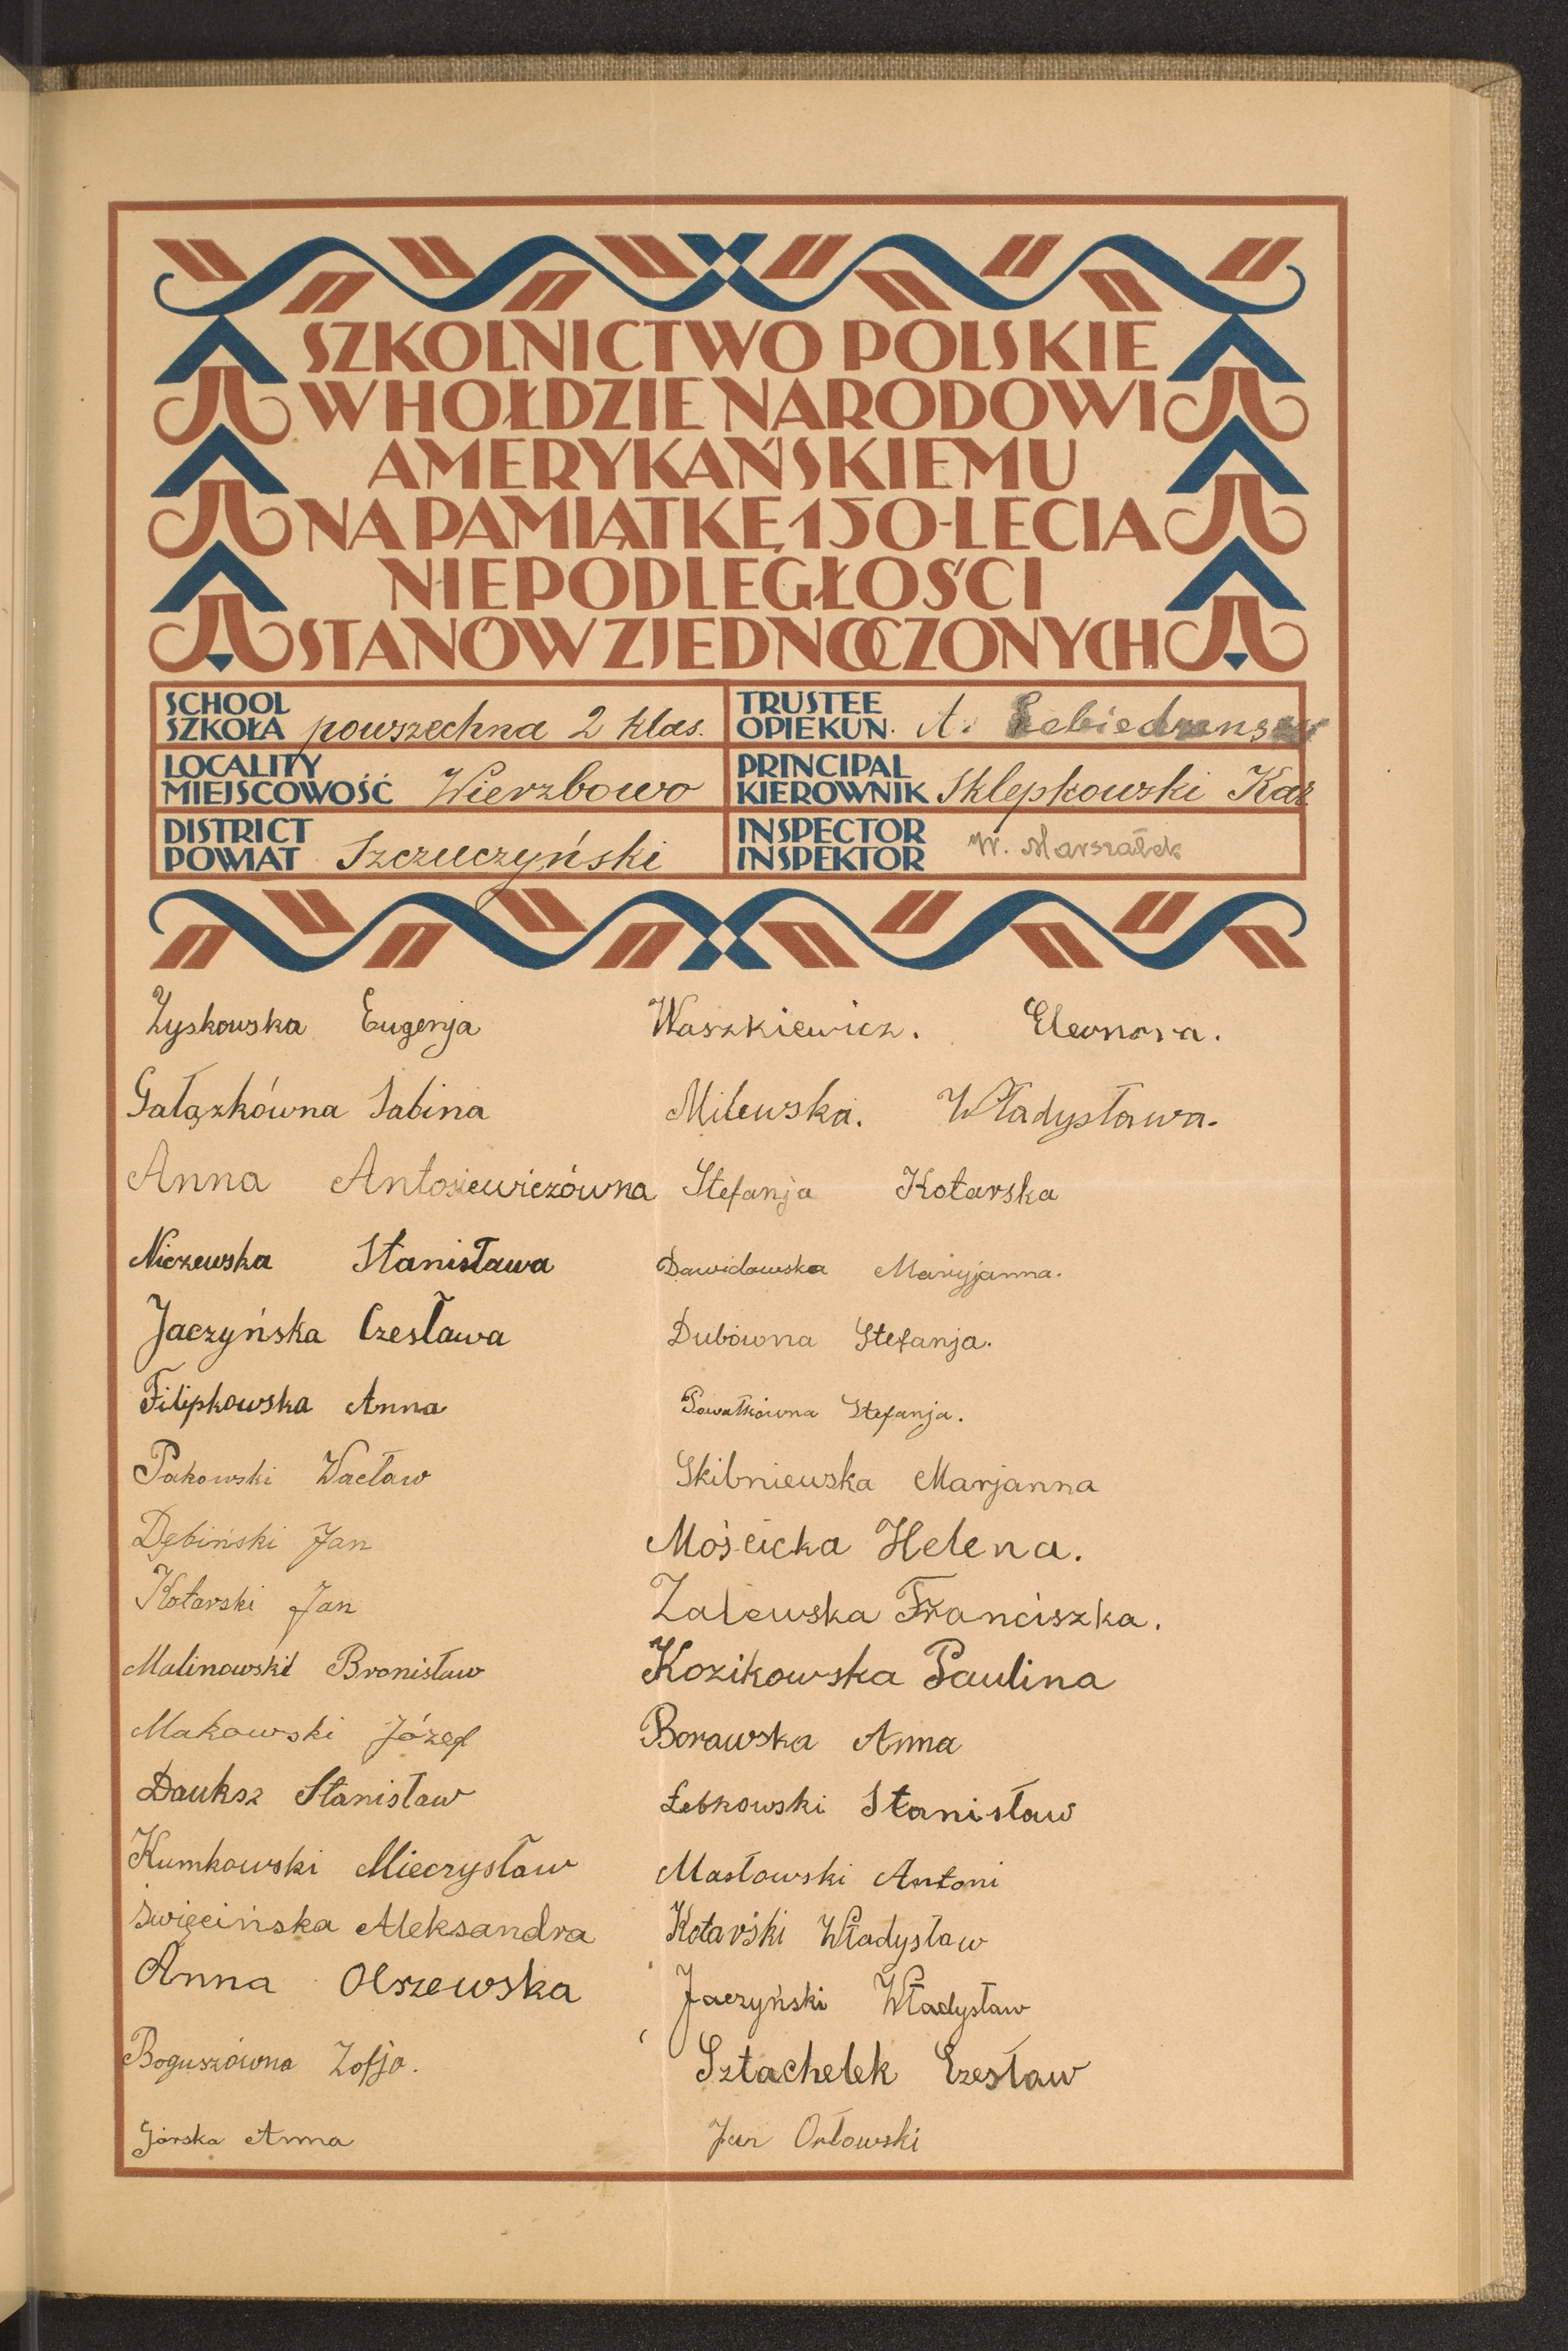 SZKOLNICTWO POLSKIE
W HOŁDZIE NARODOWI
AMERYKAŃSKIEMU
NA PAMIĄTKĘ 150-LECIA
NIEPODLEGŁOŚCI
STANÓW ZJEDNOCZONYCH
SCHOOL
SZKOŁA powszechna 2 klas.
TRUSTEE
OPIEKUN. A.
LOCALITY
MIEJSCOWOŚĆ Wierzbowo
PRINCIPAL
KIEROWNIK Sklepkowski Kaz
DISTRICT
POWIAT Szczuczyński
INSPECTOR
INSPEKTOR W. Marszałek
Zyskowska Eugenja
Gałązkówna Sabina
Anna Antosiewiczówna
Niczewska Stanisława
Jaczyńska Czesława
Filipkowska Anna
Pakowski Wacław
Dębiński Jan
Kotarski Jan
Malinowski Bronisław
Makowski Józef
Dauksz Stanisław
Kumkowski Mieczysław
Święcińska Aleksandra
Anna Olszewska
Boguszówna Zofja.
Górska Anna
Waszkiewicz. Eleonora.
Milewska. Władysława.
Stefanja Kotarska
Dawidowska Maryjanna.
Dubówna Stefanja.
Stefanja.
Skibniewska Marjanna
Mościcka Helena.
Zalewska Franciszka.
Kozikowska Paulina
Borawska Anna
Łebkowski Stanisław
Masłowski Antoni
Kotarski Władysław
Jaczyński Władysław
Sztachelek Czesław
Jan Orłowski